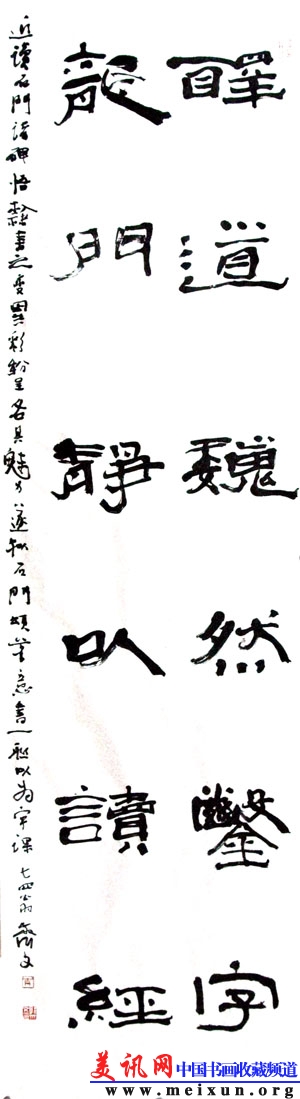 醳道巍然鑿字
龍門靜以讀經
近讀石門諸碑悟隸書之變異彩紛呈各具魅力遂擬石門頌筆意書一聯以為字課 七四翁齊文
美讯网 中国书画收藏频道
www.meixun.org